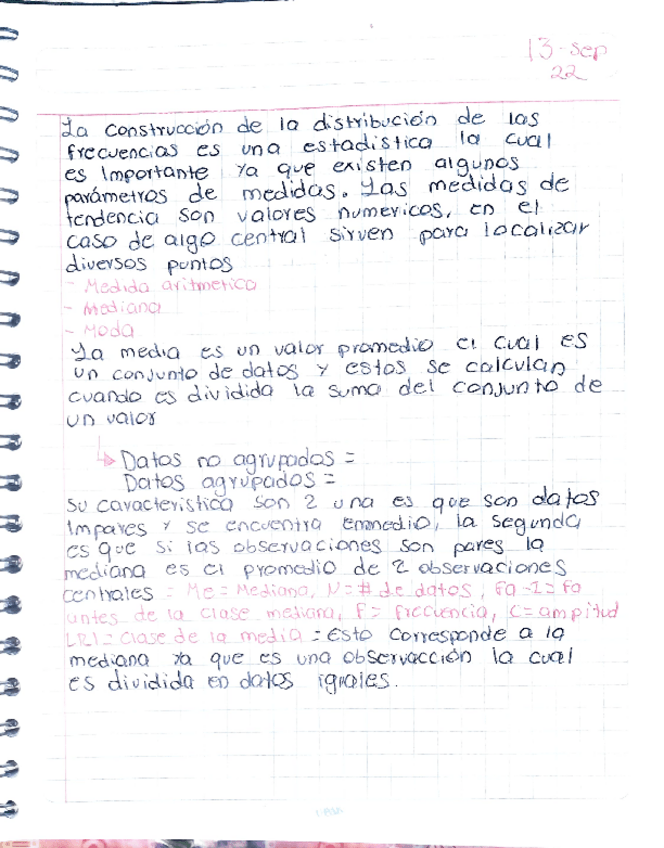 13-sep
22
La construcción de la distribución de las
frecuencias es una estadística la cual
es Importante ya que existen algunos
parámetros de medidas. Las medidas de
tendencia son valores numericos, en el
caso de algo central sirven para localizar
diversos puntos
- Medida aritmetica
- Mediana
- Moda
La media es un valor promedio el cual es
un conjunto de datos y estos se calculan
cuando es dividida la suma del conjunto de
un valor
↳ Datos no agrupados =
Datos agrupados =
Su caracteristica son 2 una es que son datos
Impares y se encuentra enmedio, la segunda
es que si las observaciones son pares la
mediana es el promedio de 2 observaciones
centrales = Me = Mediana, N = # de datos, fa-1 = fa
antes de la clase mediana, F = frecuencia, C = amplitud
LRI = Clase de la media = Esto corresponde a la
mediana ya que es una observacción la cual
es dividida en datos iguales.